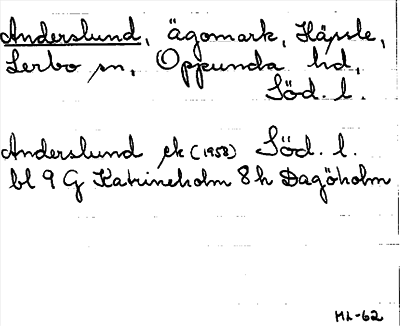 Anderslund, ägomark, Häpsle,
Lerbo sn, Oppunda hd,
Söd. l.
Anderslund ek (1958) Söd. l.
bl 9 G Katrineholm 8 h Dagöholm
HL-62